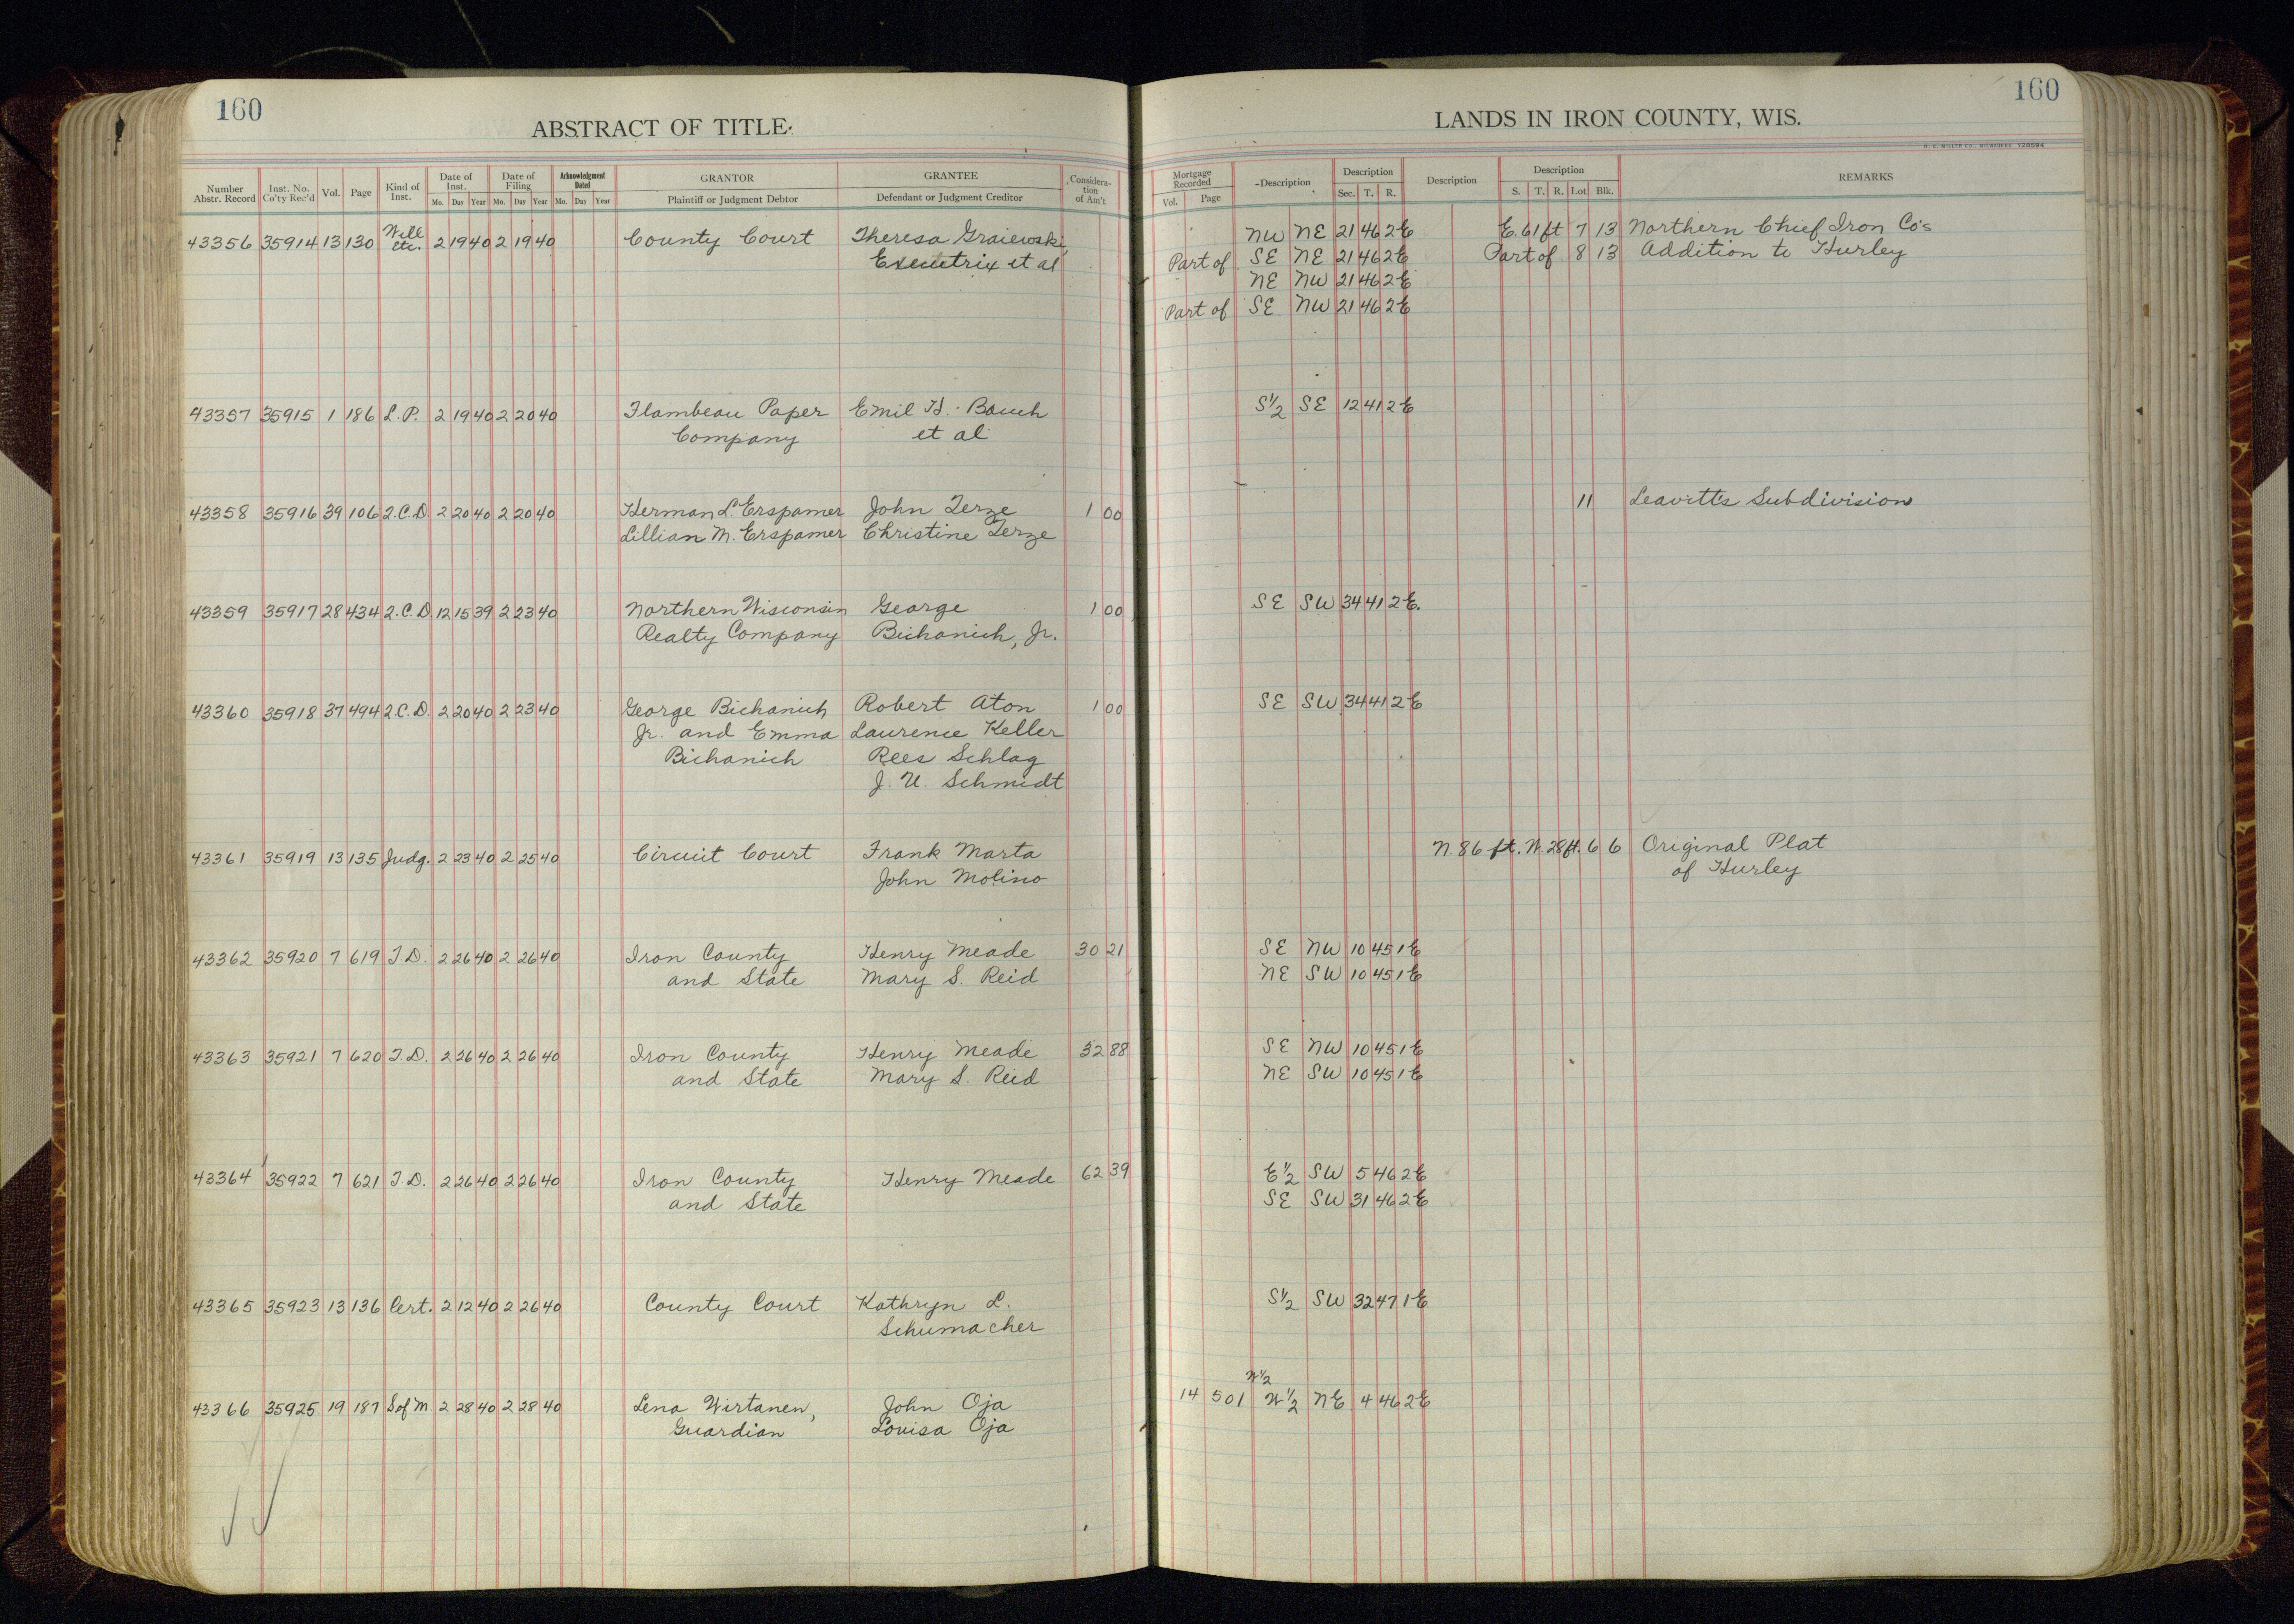 160
160
ABSTRACT OF TITLE.
LANDS IN IRON COUNTY, WIS.
H. C. MILLER CO., MILWAUKEE
Number Abstr. Record | Inst. No. Co'ty Rec'd | Vol. | Page | Kind of Inst. | Date of Inst. Mo. Day Year | Date of Filing Mo. Day Year | Acknowledgment Dated Mo. Day Year | GRANTOR Plaintiff or Judgment Debtor | GRANTEE Defendant or Judgment Creditor | Consideration of Am't | Mortgage Recorded Vol. Page | Description | Description Sec. T. R. | Description | Description S. T. R. Lot Blk. | REMARKS
43356 35914 13 130 Will etc. 2 19 40 2 19 40 County Court Theresa Graiewski, NW NE 21 46 2E E. 61 ft 7 13 Northern Chief Iron Co's
Executrix et al Part of SE NE 21 46 2E Part of 8 13 Addition to Hurley
NE NW 21 46 2E
Part of SE NW 21 46 2E
43357 35915 1 186 L.P. 2 19 40 2 20 40 Flambeau Paper Emil H. Bauch S½ SE 12 41 2E
Company et al
43358 35916 39 106 2.C.D. 2 20 40 2 20 40 Herman L. Erspamer John Terze 1 00 11 Leavitt's Subdivision
Lillian M. Erspamer Christine Terze
43359 35917 28 434 2.C.D. 12 15 39 2 23 40 Northern Wisconsin George 1 00 SE SW 34 41 2E.
Realty Company Bichanich, Jr.
43360 35918 37 494 2.C.D. 2 20 40 2 23 40 George Bichanich Robert Aton 1 00 SE SW 34 41 2E
Jr. and Emma Laurence Keller
Bichanich Rees Schlag
J. U. Schmidt
43361 35919 13 135 Judg. 2 23 40 2 25 40 Circuit Court Frank Marta N. 86 ft. W. 28 ft. 6 6 Original Plat
John Molino of Hurley
43362 35920 7 619 T.D. 2 26 40 2 26 40 Iron County Henry Meade 30 21 SE NW 10 45 1E
and State Mary S. Reid NE SW 10 45 1E
43363 35921 7 620 T.D. 2 26 40 2 26 40 Iron County Henry Meade 32 88 SE NW 10 45 1E
and State Mary S. Reid NE SW 10 45 1E
43364 35922 7 621 T.D. 2 26 40 2 26 40 Iron County Henry Meade 62 39 E½ SW 5 46 2E
and State SE SW 31 46 2E
43365 35923 13 136 Cert. 2 12 40 2 26 40 County Court Kathryn L. S½ SW 32 47 1E
Schumacher
W½
43366 35925 19 187 S of M 2 28 40 2 28 40 Lena Wirtanen, John Oja 14 501 W½ NE 4 46 2E
Guardian Louisa Oja